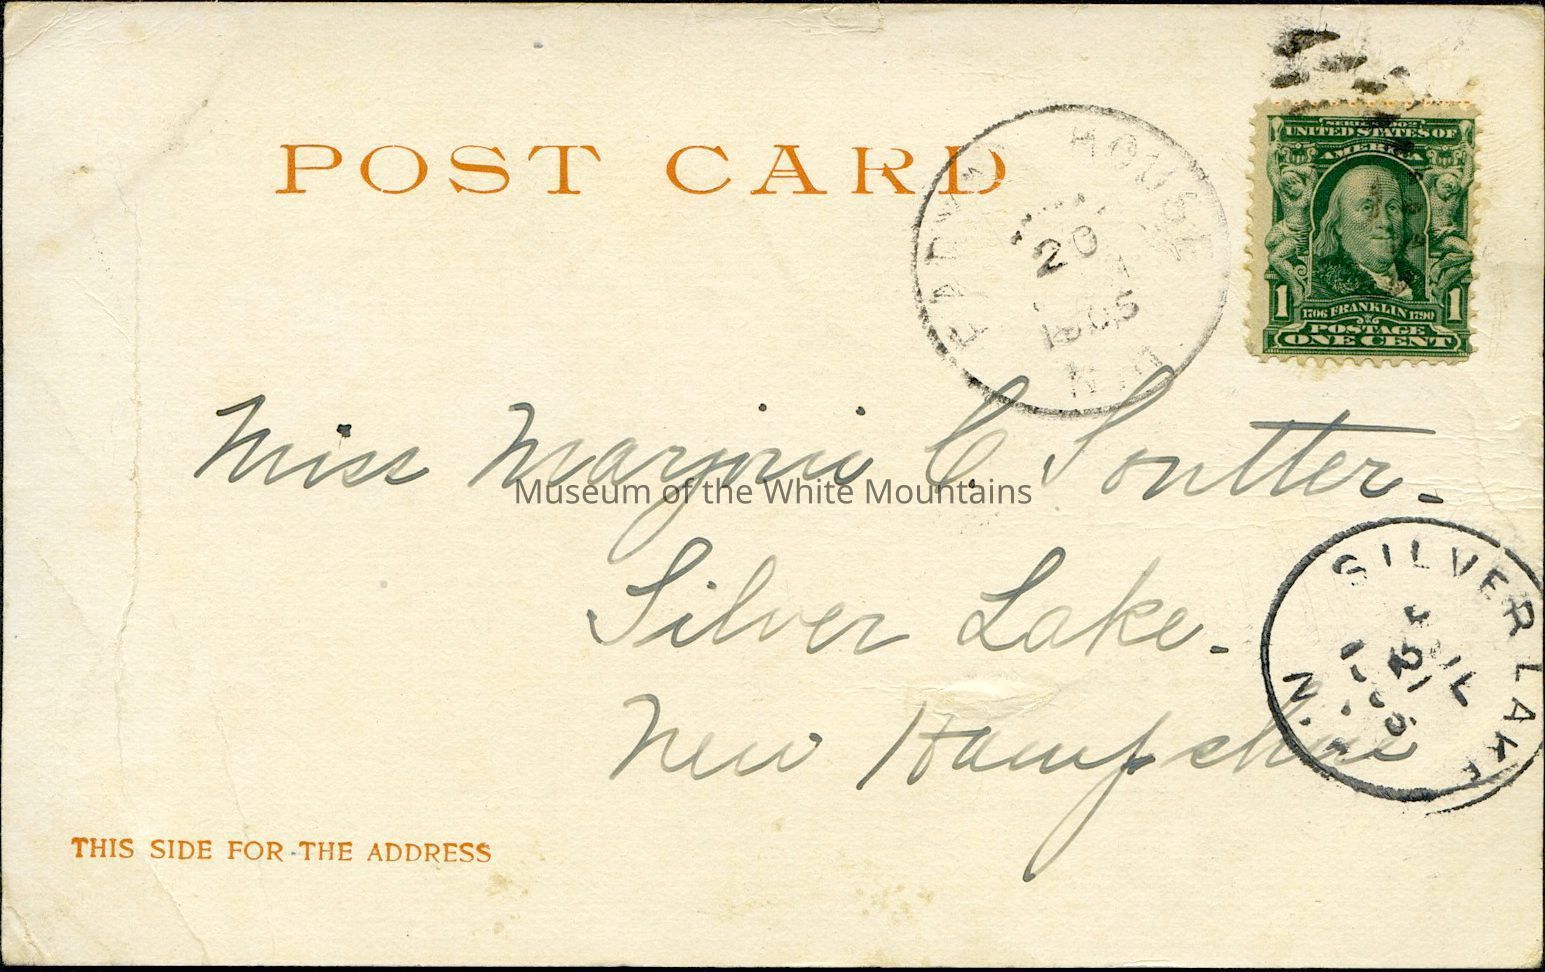 POST CARD
HOUSE
20
1905
N.H.
SERIES 1902
UNITED STATES OF
AMERICA
1 1706 FRANKLIN 1790 1
POSTAGE
ONE CENT
Miss Marjorie C. Soutter-
Museum of the White Mountains
Silver Lake-
New Hampshire
SILVER LAKE
JUL
21
N.H.
THIS SIDE FOR THE ADDRESS